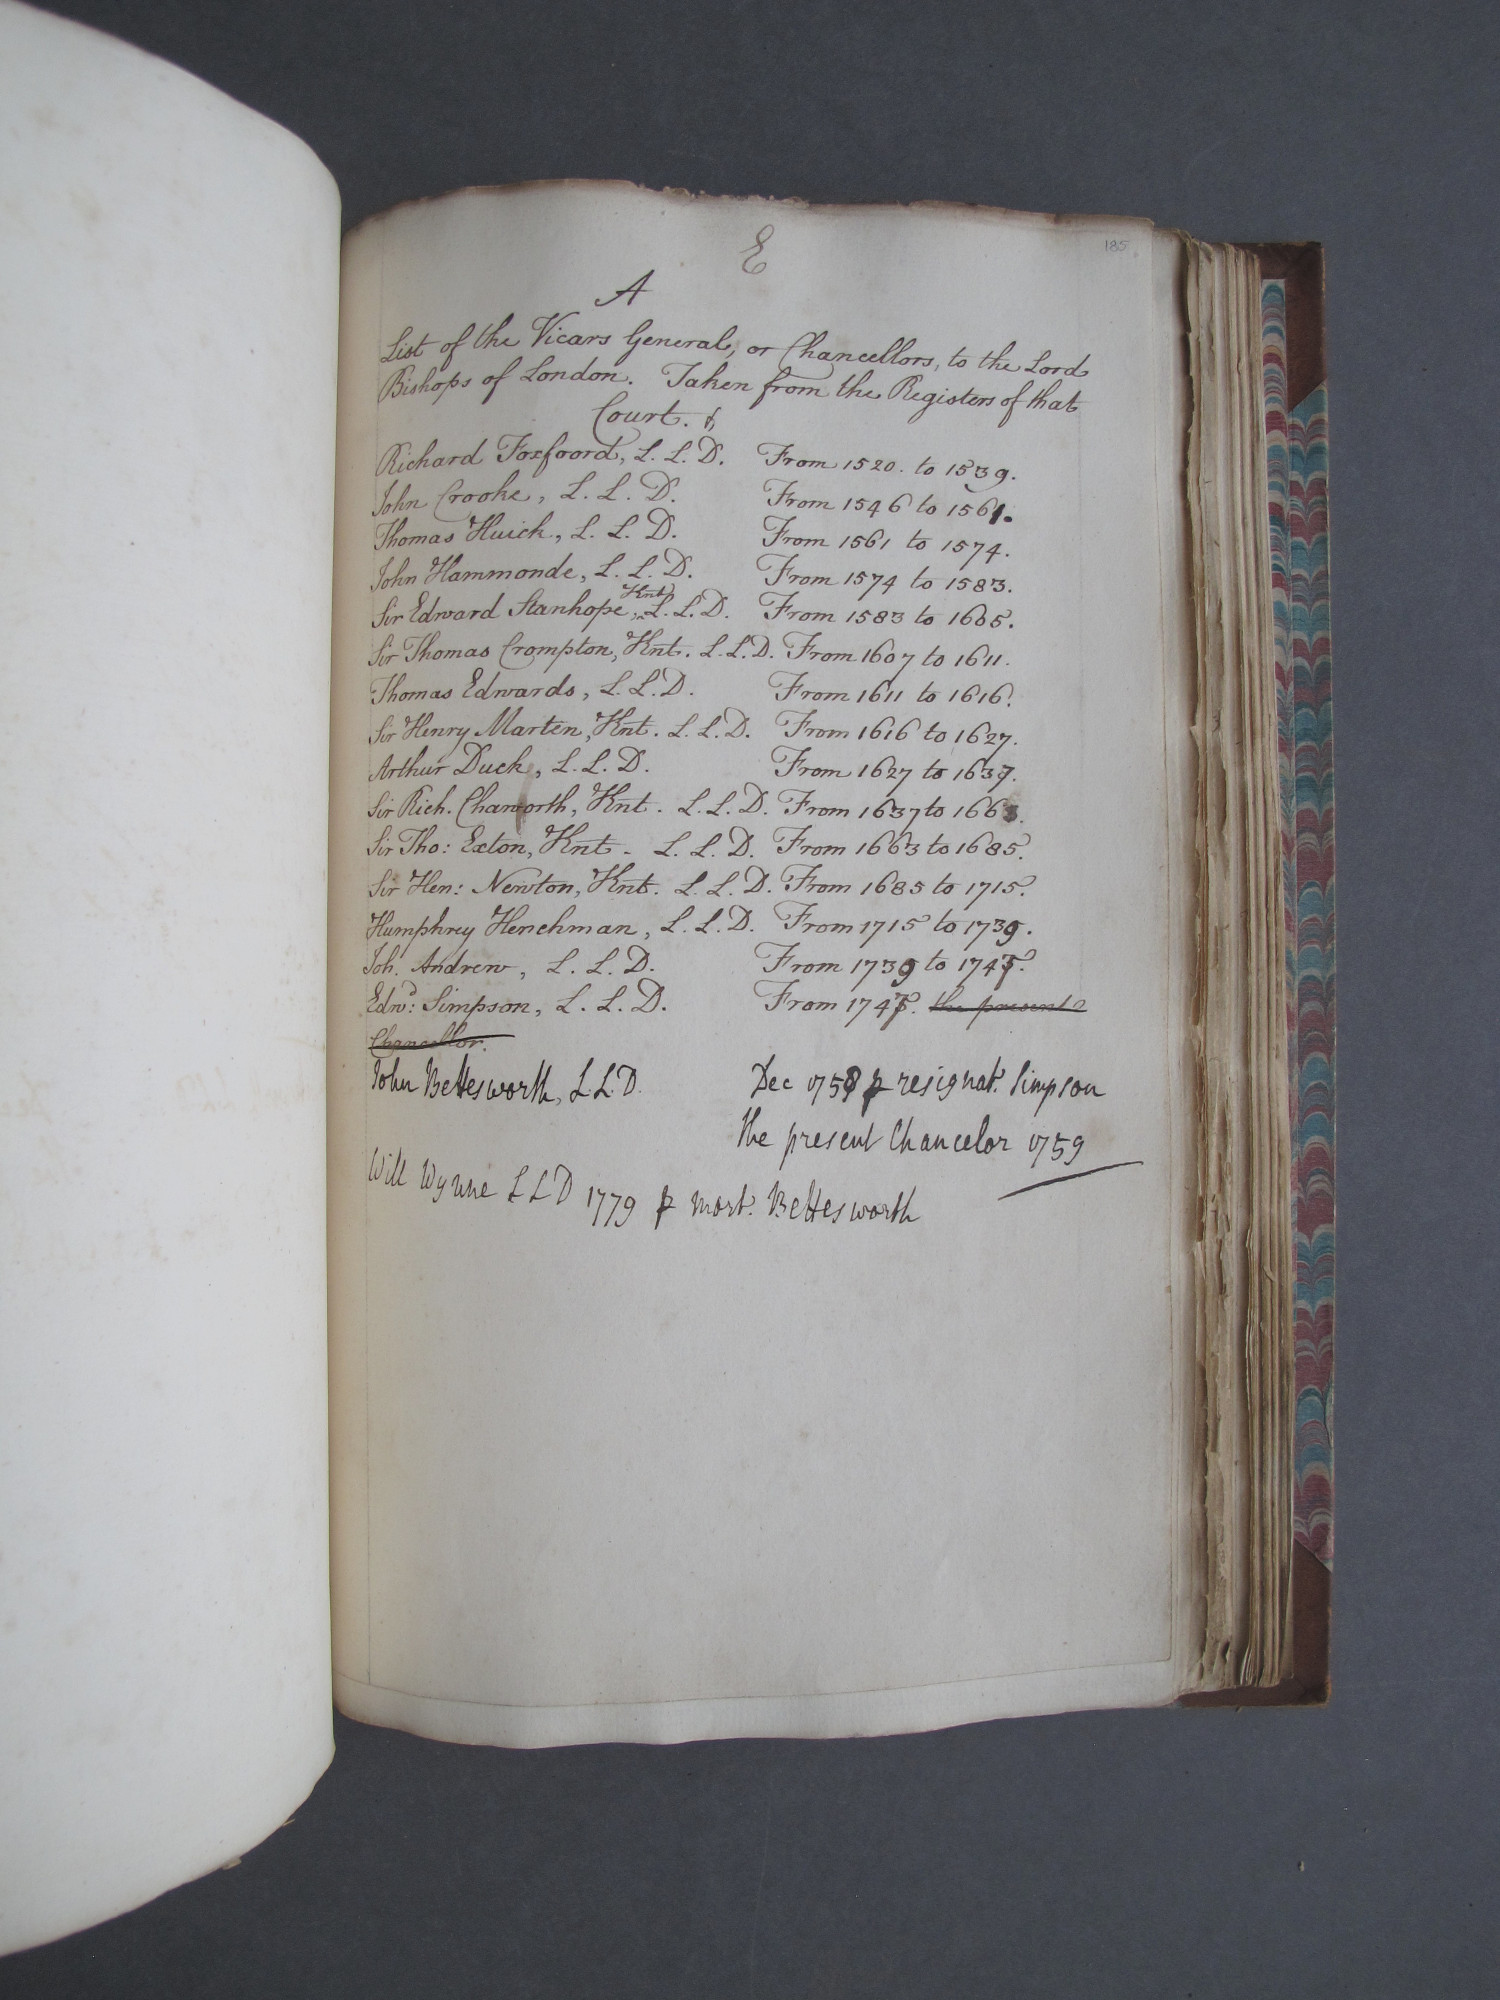 185
E
A
List of the Vicars General, or Chancellors, to the Lord
Bishops of London. Taken from the Registers of that
Court.
Richard Foxfoord, L. L. D. From 1520. to 1539.
John Crooke, L. L. D. From 1546 to 1561.
Thomas Huick, L. L. D. From 1561 to 1574.
John Hammonde, L. L. D. From 1574 to 1583.
Sir Edward Stanhope, Knt L. L. D. From 1583 to 1605.
Sir Thomas Crompton, Knt. L. L. D. From 1607 to 1611.
Thomas Edwards, L. L. D. From 1611 to 1616.
Sir Henry Marten, Knt. L. L. D. From 1616 to 1627.
Arthur Duck, L. L. D. From 1627 to 1637.
Sir Rich. Chaworth, Knt. L. L. D. From 1637 to 1663.
Sir Tho: Exton, Knt - L. L. D. From 1663 to 1685.
Sir Hen: Newton, Knt. L. L. D. From 1685 to 1715.
Humphrey Henchman, L. L. D. From 1715 to 1739.
Joh. Andrew, L. L. D. From 1739 to 1747.
Edwd: Simpson, L. L. D. From 1747. the present
Chancellor.
John Bettesworth, L.L.D. Dec 1758 p resignat. Simpson
the present Chancelor 1759
Will Wynne L L D 1779 p mort. Bettesworth